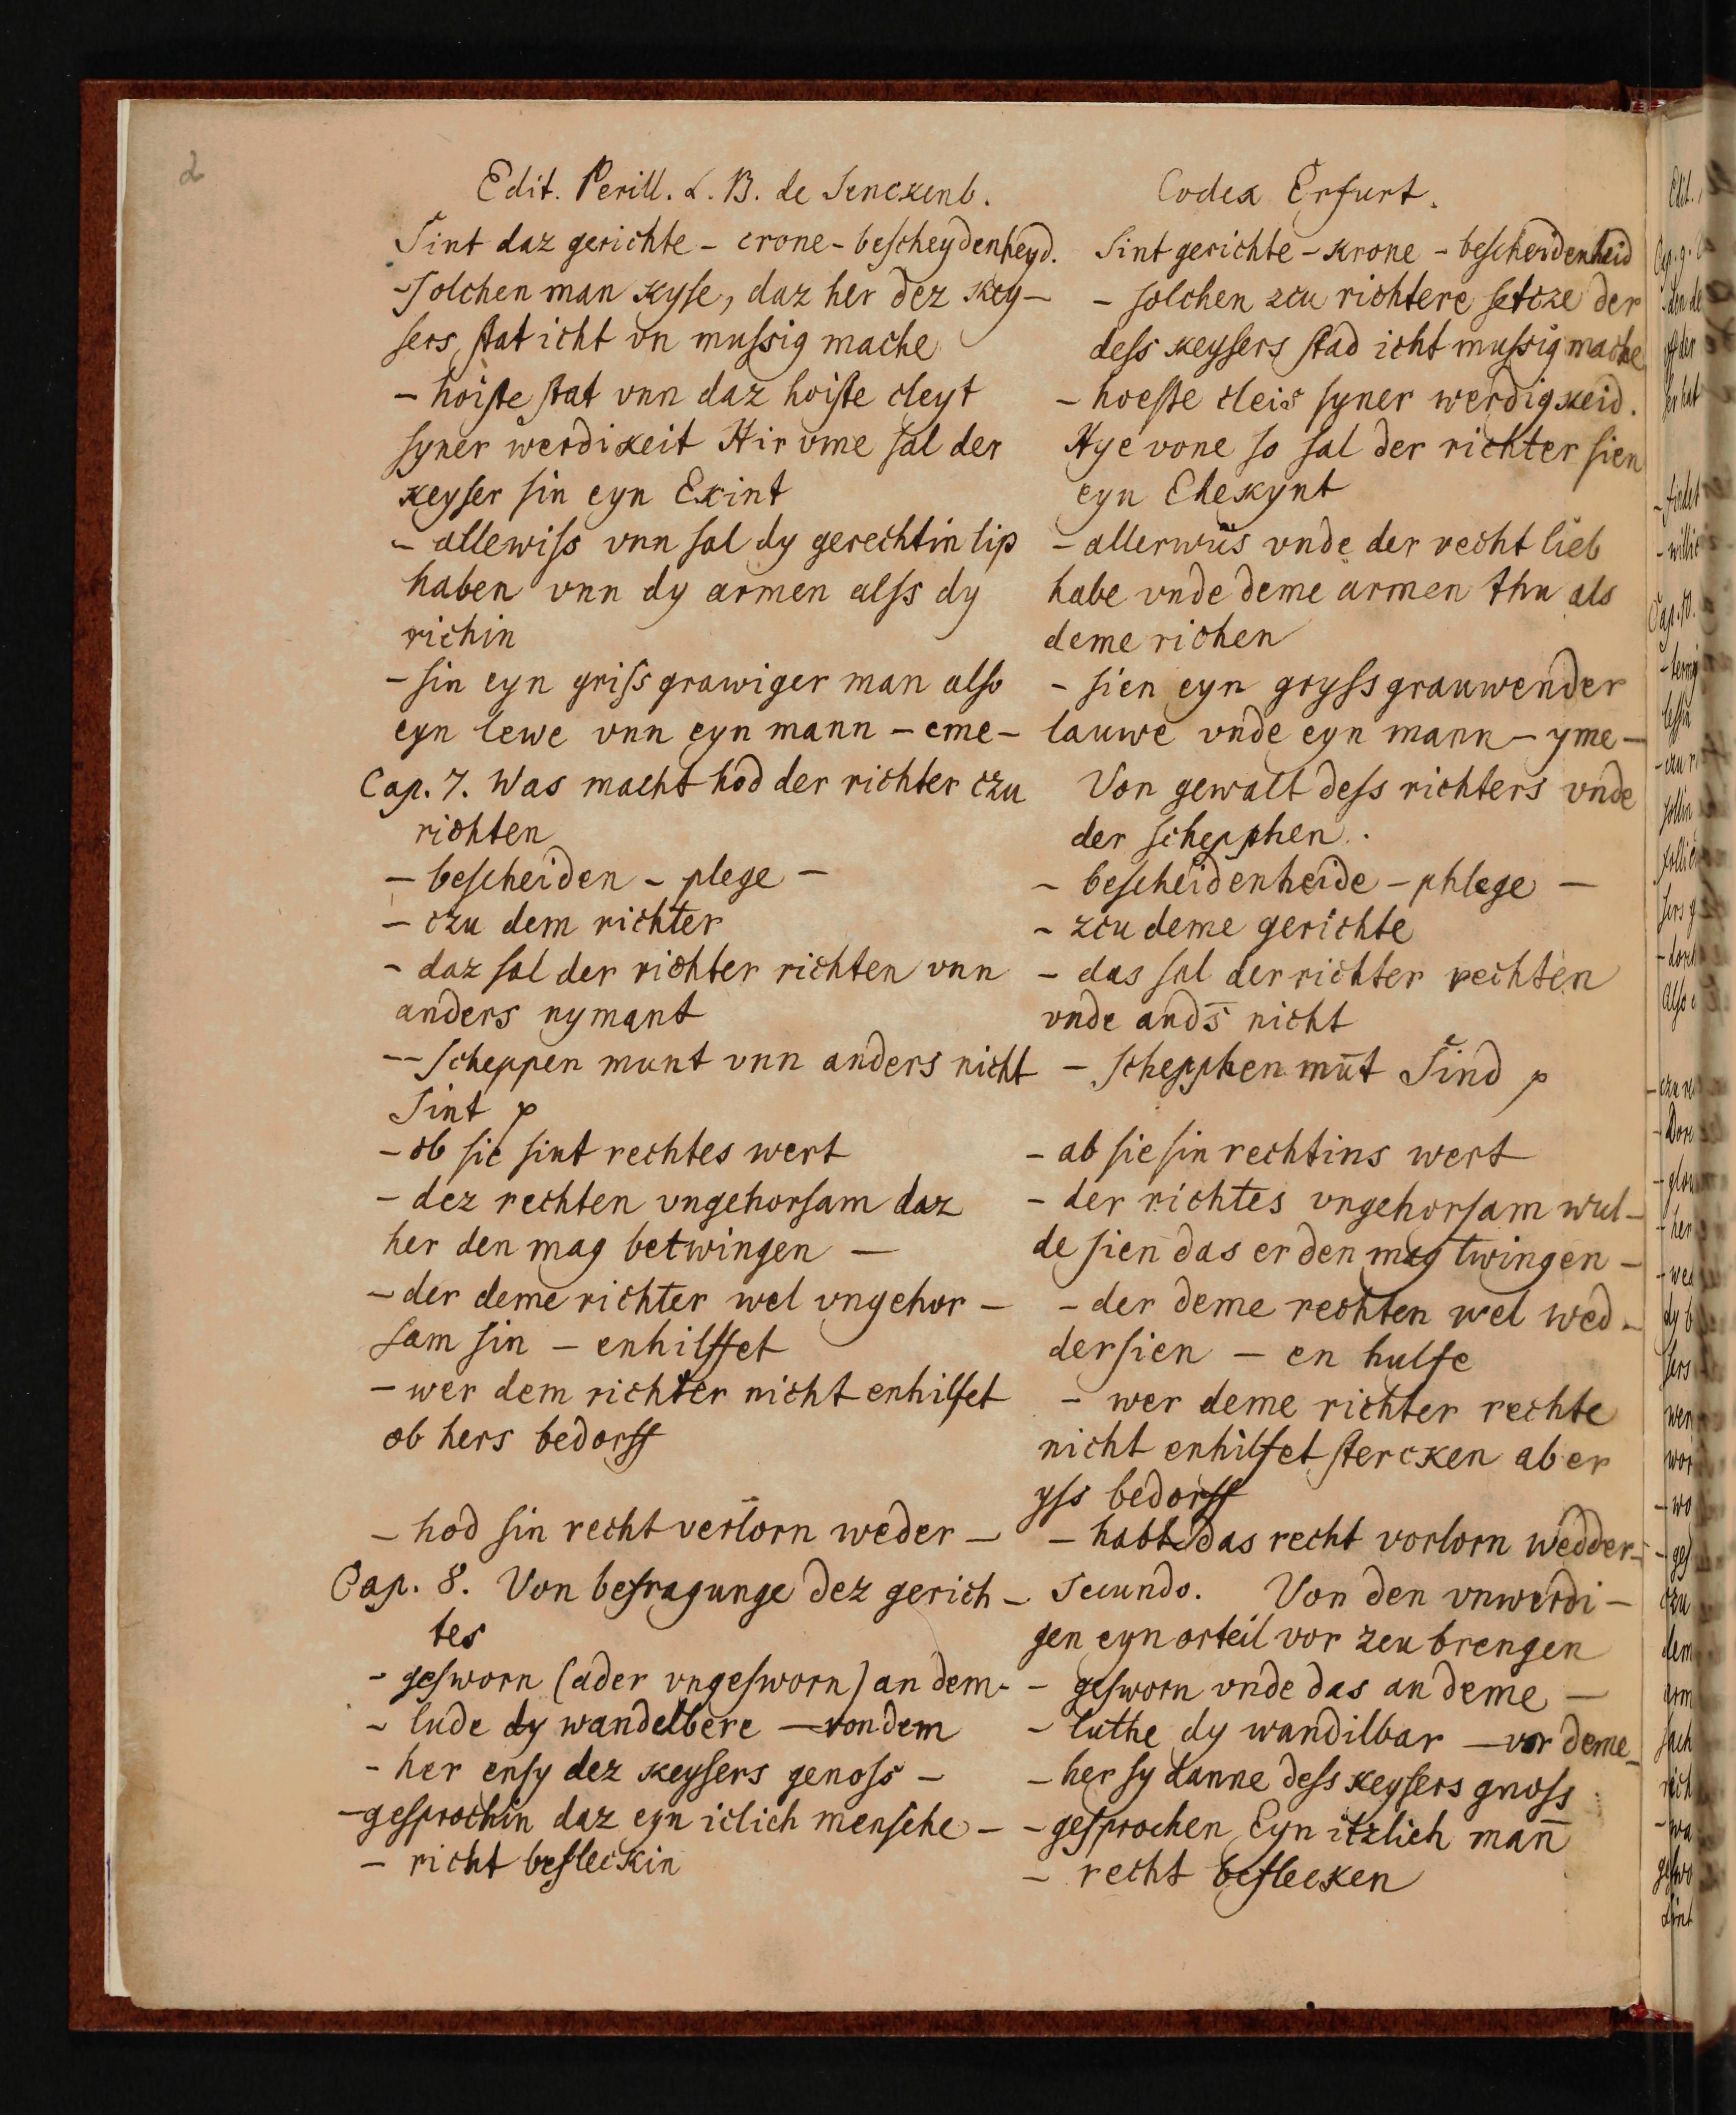 2
Edit. Perill. L. B. de Senckenb.
Sint daz gerichte – crone – bescheydenheyd.
– solchen man kyse, daz her dez key–
sers stat icht vn mussig mache
– hoiste stat vnn daz hoiste cleyt
syner werdikeit Hir vme sal der
keyser sin eyn Ekint
– allewiss vnn sal dy gerechtin lip
haben vnn dy armen alss dy
richin
– sin eyn griss grawiger man also
eyn lewe vnn eyn mann – eme –
Cap. 7. Was macht hod der richter czu
richten
– bescheiden – plege –
– czu dem richter
– daz sal der richter richten vnn
anders nymant
– scheppen munt vnn anders nicht
Sint p
– ob sie sint rechtes wert
– dez rechten vngehorsam daz
her den mag betwingen –
– der deme richter wel vngehor–
sam sin – enhilffet
– wer dem richter nicht enhilfet
ob hers bedorff
– hod sin recht verlorn weder –
Cap. 8. Von befragunge dez gerich–
tes
– gesworn (ader vngesworn) an dem –
– lude dy wandelbere – von dem
– her ensy dez keysers genoss –
– gesprochin daz eyn iclich mensche –
– richt befleckin
Codex Erfurt.
Sint gerichte – krone – bescheidenheid
– solchen zcu richtere setcze der
dess keysers stad icht mussig mache
– hoeste cleis syner werdigkeid.
Hye vone so sal der richter sien
eyn Elekynt
– allerwiis vnde der recht lieb
habe vnde deme armen thu als
deme richen
– sien eyn gryss grauwender
lauwe vnde eyn mann – yme –
Von gewalt dess richters vnde
der schepphen.
– bescheidenheide – phlege –
– zcu deme gerichte
– das sal der richter rechten
vnde and̄s nicht
– schepphen mūt Sind p
– ab sie sin rechtins wert
– der richtes vngehorsam wul–
de sien das er den mag twingen –
– der deme rechten wel wed–
dersien – en hulfe
– wer deme richter rechte
nicht enhilfet stercken aber
yss bedorff
– habt das recht vorlorn wedder –
Secundo. Von den vnwerdi–
gen eyn orteil vor zcu brengen
– gesworn vnde das an deme –
– luthe dy wandilbar – vor deme –
– her sy danne dess keysers gnoss
– gesprochen Eyn itzlich man̄
– recht beflecken